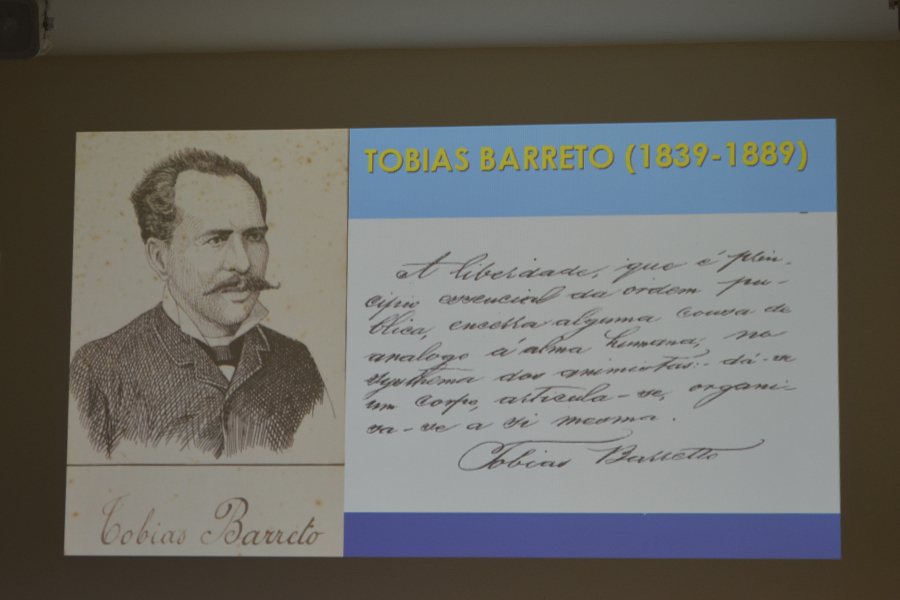 TOBIAS BARRETO (1839-1889)
A liberdade, que é prin-
cipio essencial da ordem pu-
blica, encerra alguma cousa de
analogo á alma humana, no
systhema dos animistas: dá-se
um corpo, articula-se, organi-
sa-se a si mesma.
Tobias Barretto
Tobias Barreto